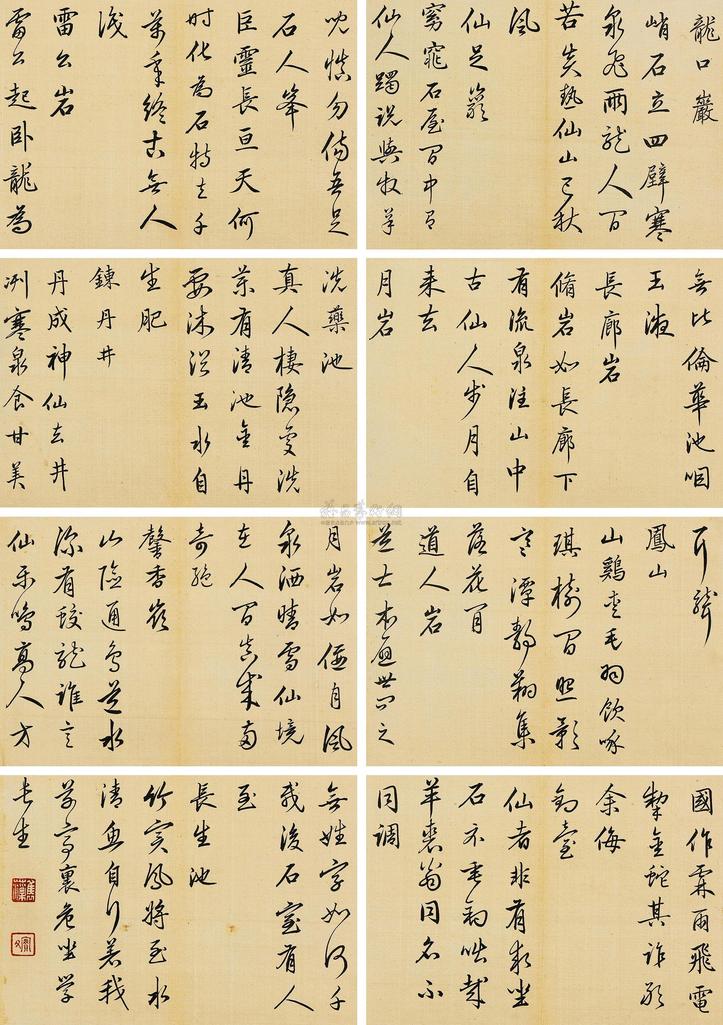 龍口巖
峭石立四壁寒
泉飛兩龍人間
苦炎熱仙山已秋
風
仙足巖
窈窕石屋間中有
仙人躅說與牧羊
兒慎勿傷吾足
石人峯
巨靈長亘天何
時化為石特立千
萬年終古無人
識
雷公岩
雷公起卧龍為
國作霖雨飛電
掣金蛇其誰敢
余侮
釣臺
仙者非有求坐
石不垂釣咄哉
羊裘翁同名不
同調
洗藥池
真人棲隱處洗
藥有清池金丹
要沐浴玉水自
生肥
鍊丹井
丹成神仙去井
冽寒泉食甘美
無比倫華池咽
玉液
長廊岩
脩岩如長廊下
有流泉注山中
古仙人步月自
来去
月岩
月岩如偃月風
泉洒晴雪仙境
在人間真成兩
奇絕
馨香巖
山險通鳥道水
深有蛟龍誰言
仙樂鳴高人方
耳聾
鳳山
山鷄愛毛羽飲啄
琪樹間照影
寒潭靜翔集
落花間
道人岩
道士本避世之
無姓字如何千
載後石室有人
至
長生池
竹實鳳將至水
清魚自行若我
草亭裏危坐學
長生